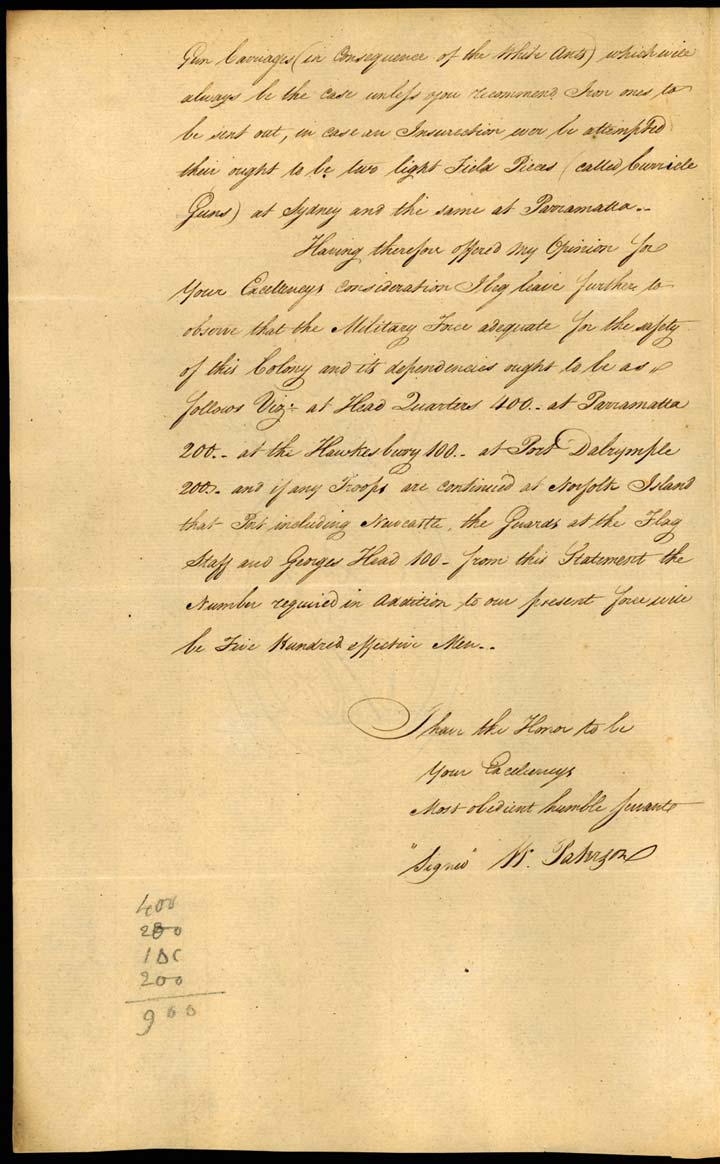 Gun Carriages (in Consequence of the White Ants) which will
always be the case unless you recommend Iron ones to
be sent out, in case an Insurection ever be attempted
their ought to be two light Field Pieces (called Curricle
Guns) at Sydney and the same at Parramatta..
Having therefore offered my Opinion for
Your Excellencys consideration I beg leave further to
observe that the Military Force adequate for the safety
of this Colony and its dependencies ought to be as
follows Viz: at Head Quarters 400.. at Parramatta
200.. at the Hawkesbury 100.. at Port Dalrymple
200.. and if any Troops are continued at Norfolk Island
that Port including Newcastle, the Guards at the Flag
Staff and Georges Head 100.. from this Statement the
Number required in Addition to our present force will
be Five Hundred effective Men..
I have the Honor to be
Your Excellencys
Most obedient humble servant
"Signed" W. Paterson
400
200
100
200
900